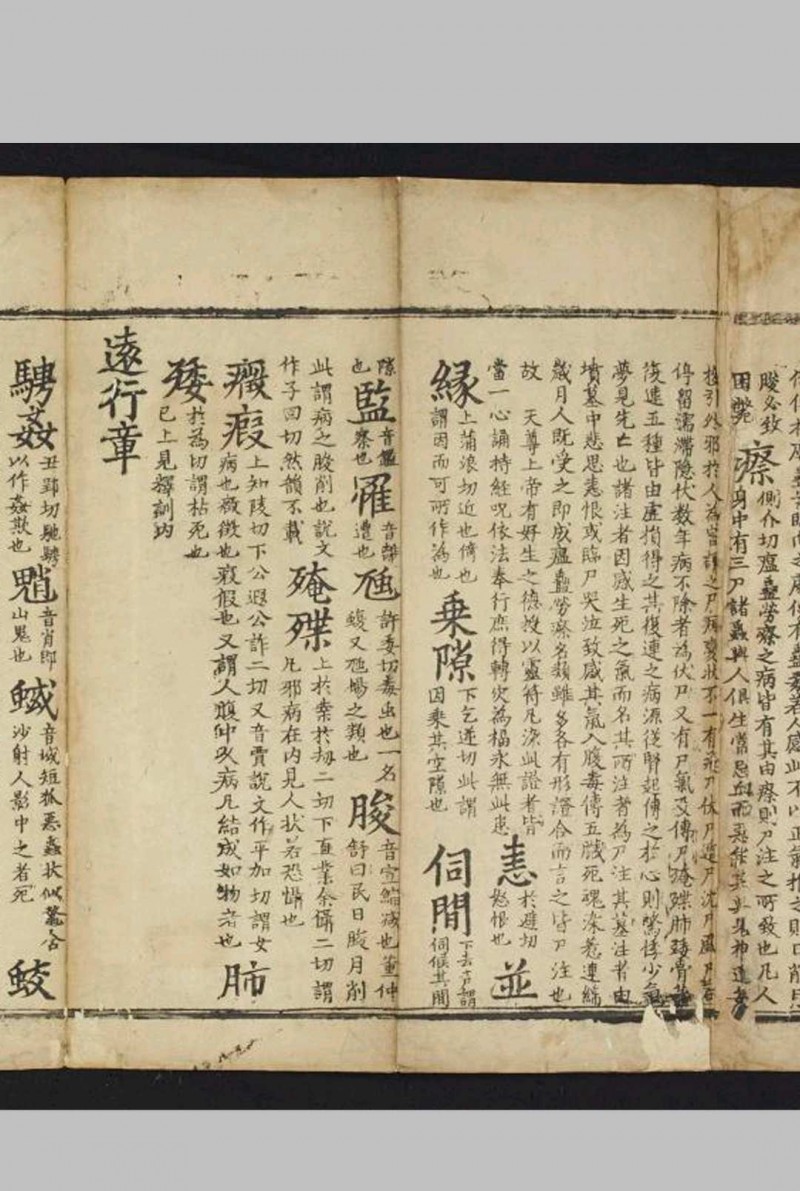 困斃 瘵 側介切瘟蠱勞瘵之病皆有其由瘵則尸注之所致也凡人
身中有三尸諸蟲與人俱生
停留濡滯隱伏数年病不除者為伏尸又有尸氣及傳尸殗殜肺痿骨
復連五種皆由虛損得之其復連之病源從腎起傳之於心則驚悸少氣
夢見先亡也諸注者因感生死之氣而名其所注者為尸注其墓注者由
墳墓中悲思恚恨或臨尸哭泣致感其氣入腹毒傳五臟死魂染惹連緜
歲月人既受之即成瘟蠱勞瘵名類雖多各有形證合而言之皆尸注也
故 天尊上帝有好生之德授以靈符凡染此證者皆
當一心誦持經呪依法奉行庶得轉災為福永無此患 恚 於避切
怒恨也 並
緣 上蒲浪切近也倚也
謂因而可所作為也 乘隙 下乞逆切此謂
因乘其空隙也 伺間 下去声謂
伺候其間
隙
也 監 音鑑
察也 罹 音離
遭也 虺 許委切毒虫也一名
蝮又虺蜴之類也 朘 音宣縮減也董仲
舒曰民日朘月削
此謂病之朘削也說文
作子回切然韻不載 殗殜 上於業於劫二切下直業余懾二切謂
凡邪病在内見人状若恐懾也
癥瘕 上知陵切下公遐公詐二切又音賈說文作平加切謂女
病也癥徵也瘕假也又謂人腹中久病凡結成如物者也 肺
痿 於為切謂枯死也
已上見釋訓内
遠行章
騁姦 丑郢切馳騁
以作姦欺也 魈 音肖即
山鬼也 蜮 音域短狐惡蟲状似鱉含
沙射人影中之者死 蛟